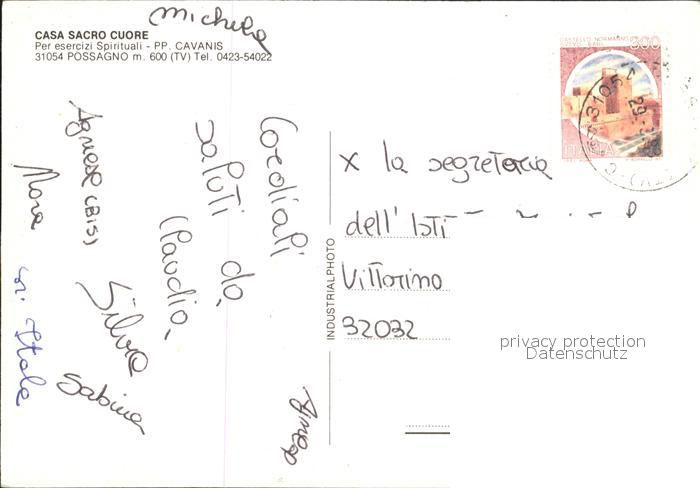 CASA SACRO CUORE
Per esercizi Spirituali - PP. CAVANIS
31054 POSSAGNO m. 600 (TV) Tel. 0423-54022
Michela
Cordiali
saluti da,
Claudio,
Silvia
Agnese (BIS)
Mara
Sabina
Agnese
INDUSTRIALPHOTO
CASTELLO NORMANNO
300
ITALIA
31054
X la segreteria
dell' Isti
Vittorino
32032
privacy protection
Datenschutz